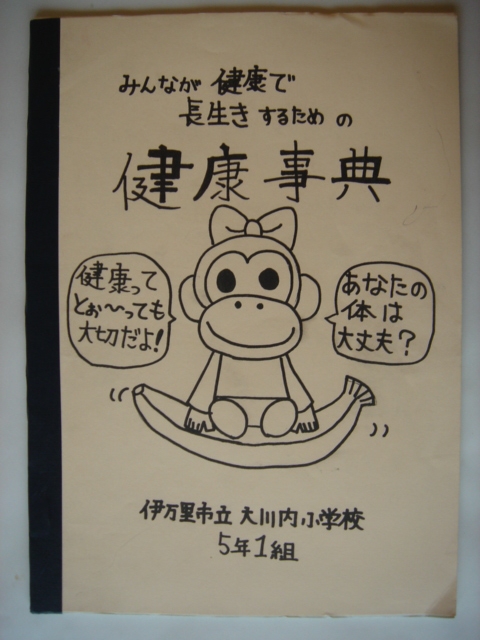 みんなが 健康で
長生きするための
健康事典
健康って
とぉ〜っても
大切だよ!
あなたの
体は
大丈夫?
伊万里市立 大川内小学校
5年1組